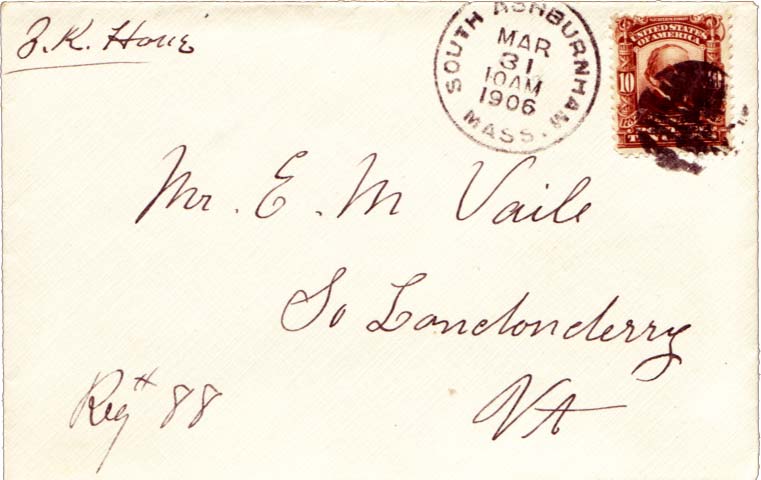 SOUTH ASHBURNHAM
MAR
31
10AM
1906
MASS.
UNITED STATES
OF AMERICA
10
Mr. E. M Vaile
So Londonderry
Vt
Reg 88